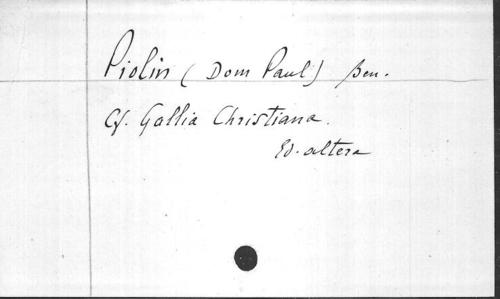 Piolin (Dom Paul) Ben.
Cf. Gallia Christiana.
Ed. altera